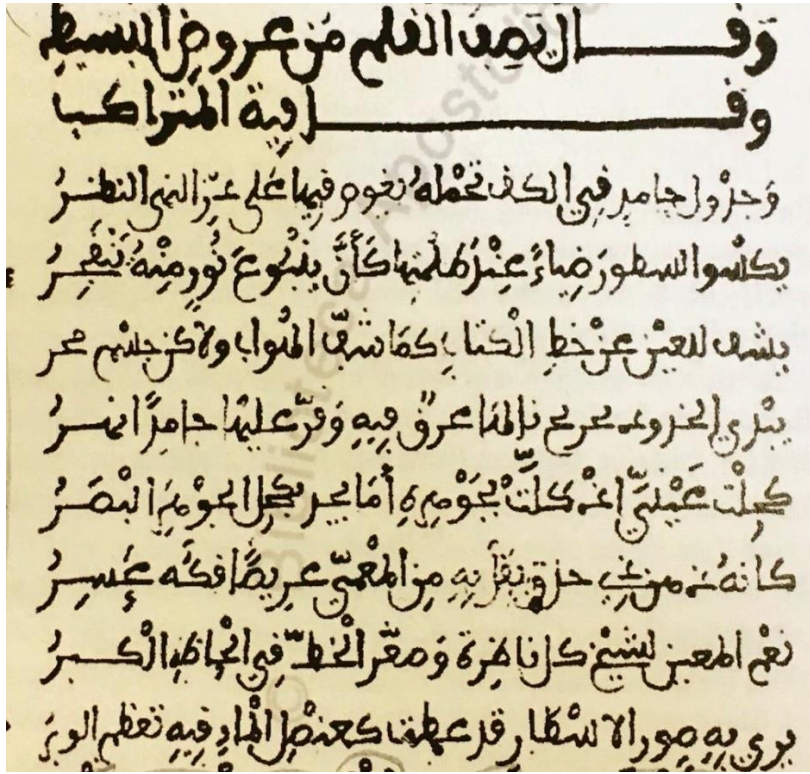 وقال يصف القلم من عروض البسيط
وقافية المتراكب
وجدول جامد في الكف تحمله يغوص فيها على عز النهى النظر
يكسوا السطور ضياء عند ظلمتها كأن ينبوع نور منه تنفجر
يشف للعين عن خط الكتاب كما شف الهواب ولاكن جلدهم
يبدي الحروف بالماء عرق فيه وقر عليها جامدا
كحلت عيني اذ كلت بجوهره أما يجد بكحل الجوهر البصر
كأنه ذهن ذي حذق يقرأ به من المعمى عريصا فكه عسر
نعم المعين لشيخ كل ناظره وصغر الخط في الحاظه الكبر
يري به صور الاسطار قد عظمت كعنصل الماء فيه تعظم الوبر